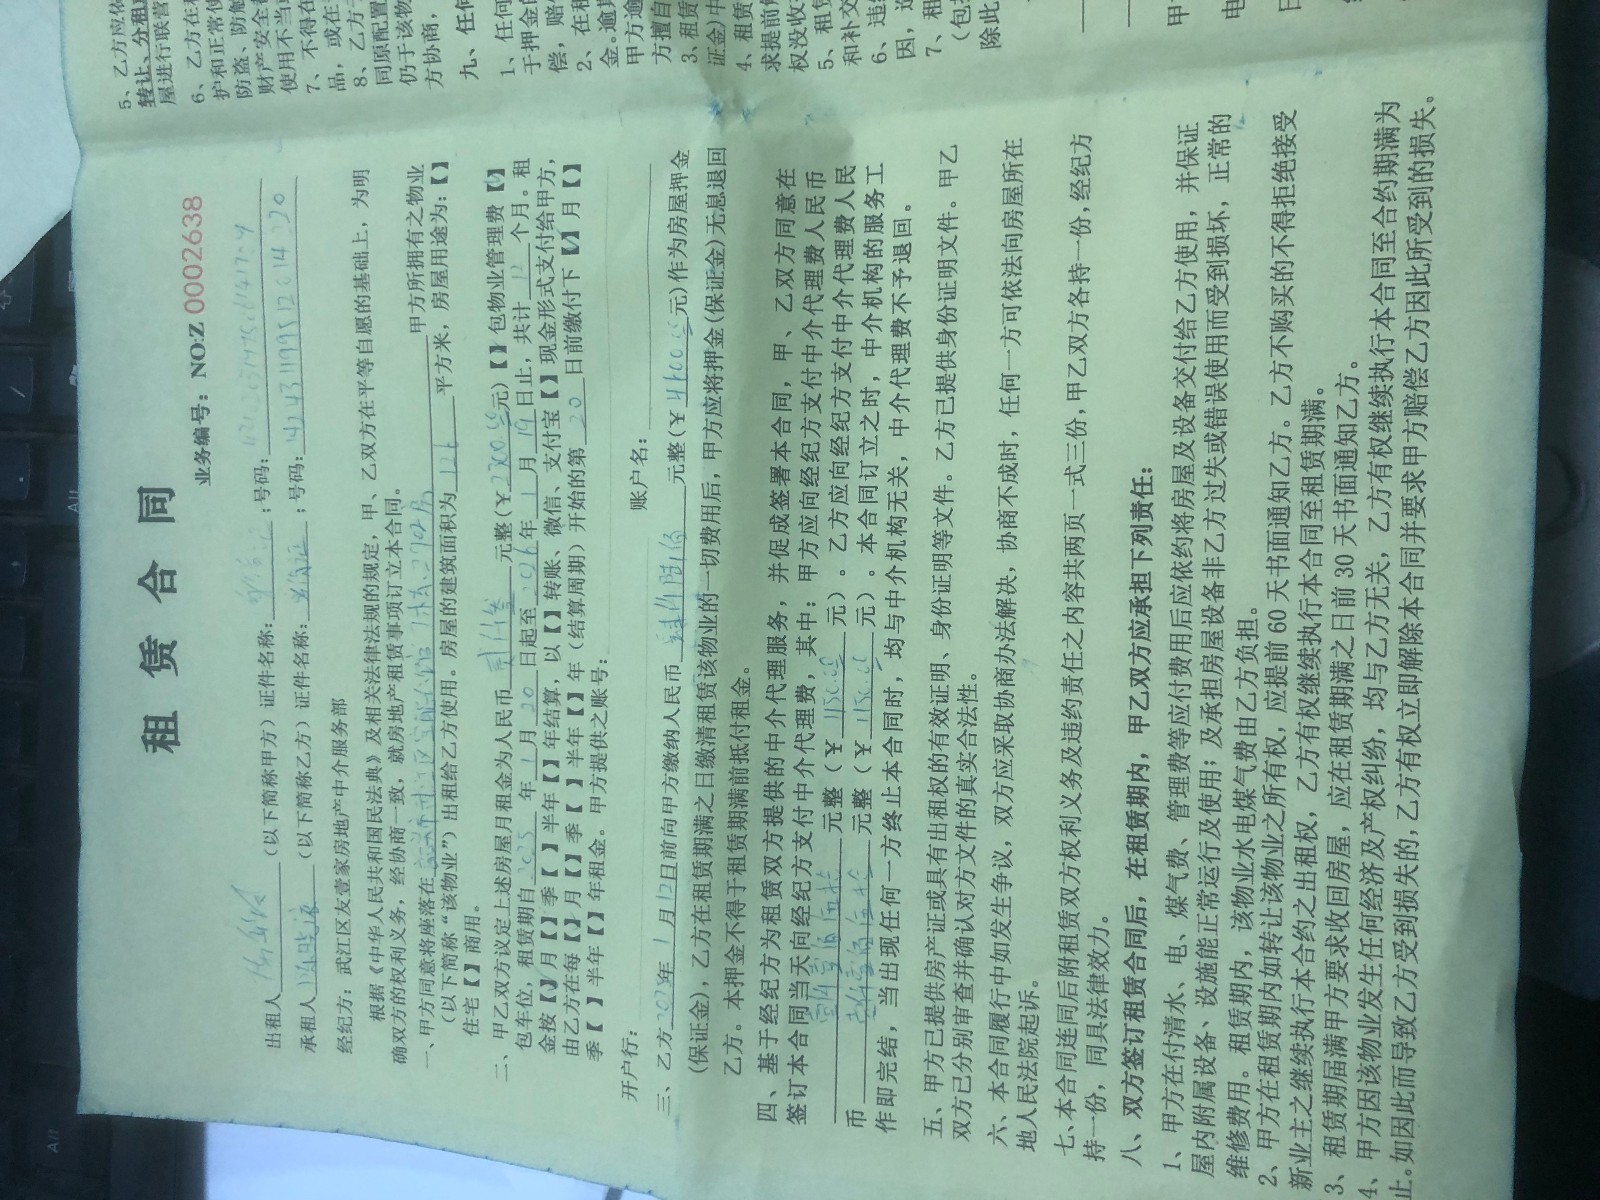 租 赁 合 同
业务编号：NO:Z 0002638
出租人 （以下简称甲方）证件名称： ；号码：
承租人 （以下简称乙方）证件名称： ；号码：
经纪方：武江区友壹家房地产中介服务部
根据《中华人民共和国民法典》及相关法律法规的规定，甲、乙双方在平等自愿的基础上，为明
确双方的权利义务，经协商一致，就房地产租赁事项订立本合同。
一、甲方同意将座落在 甲方所拥有之物业
（以下简称“该物业”）出租给乙方使用。房屋的建筑面积为 126 平方米，房屋用途为：【】
住宅【】商用。
二、甲乙双方议定上述房屋月租金为人民币 元整（￥2300.00元）【】包物业管理费【√】
包车位，租赁期自 2025 年 1 月 20 日起至 2026 年 1 月 19 日止，共计 12 个月。租
金按【√】月【】季【】半年【】年结算，以【】转账、微信、支付宝【】现金形式支付给甲方，
由乙方在每【√】月【】季【】半年【】年（结算周期）开始的第 20 日前缴付下【√】月【】
季【】半年【】年租金。甲方提供之账号：
开户行： 账户名：
三、乙方 2025年 1 月 12日前向甲方缴纳人民币 肆仟陆佰 元整（￥4600.00元）作为房屋押金
（保证金），乙方在租赁期满之日缴清租赁该物业的一切费用后，甲方应将押金（保证金）无息退回
乙方。本押金不得于租赁期满前抵付租金。
四、基于经纪方为租赁双方提供的中介代理服务，并促成签署本合同，甲、乙双方同意在
签订本合同当天向经纪方支付中介代理费，其中：甲方应向经纪方支付中介代理费人民币
壹仟壹佰伍拾 元整（￥1150.00元）。乙方应向经纪方支付中介代理费人民
币 壹仟壹佰伍拾 元整（￥1150.00元）。本合同订立之时，中介机构的服务工
作即完结，当出现任何一方终止本合同时，均与中介机构无关，中介代理费不予退回。
五、甲方已提供房产证或具有出租权的有效证明、身份证明等文件。乙方已提供身份证明文件。甲乙
双方已分别审查并确认对方文件的真实合法性。
六、本合同履行中如发生争议，双方应采取协商办法解决，协商不成时，任何一方可依法向房屋所在
地人民法院起诉。
七、本合同连同后附租赁双方权利义务及违约责任之内容共两页一式三份，甲乙双方各持一份，经纪方
持一份，同具法律效力。
八、双方签订租赁合同后，在租赁期内，甲乙双方应承担下列责任：
1、甲方在付清水、电、煤气费、管理费等应付费用后应依约将房屋及设备交付给乙方使用，并保证
屋内附属设备、设施能正常运行及使用；及承担房屋设备非乙方过失或错误使用而受到损坏，正常的
维修费用。租赁期内，该物业水电煤气费由乙方负担。
2、甲方在租赁期内如转让该物业之所有权，应提前 60 天书面通知乙方。乙方不购买的不得拒绝接受
新业主之继续执行本合约之出租权，乙方有权继续执行本合同至租赁期满。
3、租赁期届满甲方要求收回房屋，应在租赁期满之日前 30 天书面通知乙方。
4、甲方因该物业发生任何经济及产权纠纷，均与乙方无关，乙方有权继续执行本合同至合约期满为
止。如因此而导致乙方受到损失的，乙方有权立即解除本合同并要求甲方赔偿乙方因此所受到的损失。
5、乙方应依
转让、分租
屋进行联营
6、乙方在租
护和正常使
防盗、防触
财产安全
使用不当
7、不得在
品，或在
8、乙方
同原配置
仍于该物
方协商，
九、任何
1、任何
于押金的
偿，赔
2、在租
金。逾期
甲方逾
方擅自
3、租赁
证金)中
4、租赁
求提前
权没收
5、租赁
和补交
6、违约
因，
7、租
（包
除此
甲
电
日